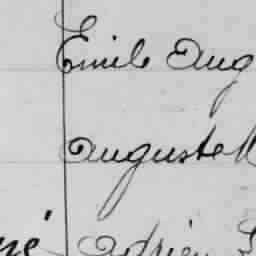 Emile Aug
Auguste
Adrien